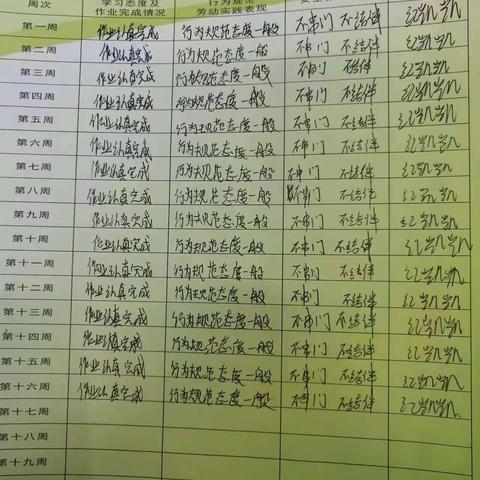 周次 学习态度及 行为规范
作业完成情况 劳动实践表现
第一周 作业认真完成 行为规范态度一般 不串门 不结伴
第二周 作业认真完成 行为规范态度一般 不串门 不结伴
第三周 作业认真完成 行为规范态度一般 不串门 不结伴
第四周 作业认真完成 行为规范态度一般 不串门 不结伴
第五周 作业认真完成 行为规范态度一般 不串门 不结伴
第六周 作业认真完成 行为规范态度一般 不串门 不结伴
第七周 作业认真完成 行为规范态度一般 不串门 不结伴
第八周 作业认真完成 行为规范态度一般 不串门 不结伴
第九周 作业认真完成 行为规范态度一般 不串门 不结伴
第十周 作业认真完成 行为规范态度一般 不串门 不结伴
第十一周 作业认真完成 行为规范态度一般 不串门 不结伴
第十二周 作业认真完成 行为规范态度一般 不串门 不结伴
第十三周 作业认真完成 行为规范态度一般 不串门 不结伴
第十四周 作业认真完成 行为规范态度一般 不串门 不结伴
第十五周 作业认真完成 行为规范态度一般 不串门 不结伴
第十六周 作业认真完成 行为规范态度一般 不串门 不结伴
第十七周
第十八周
第十九周